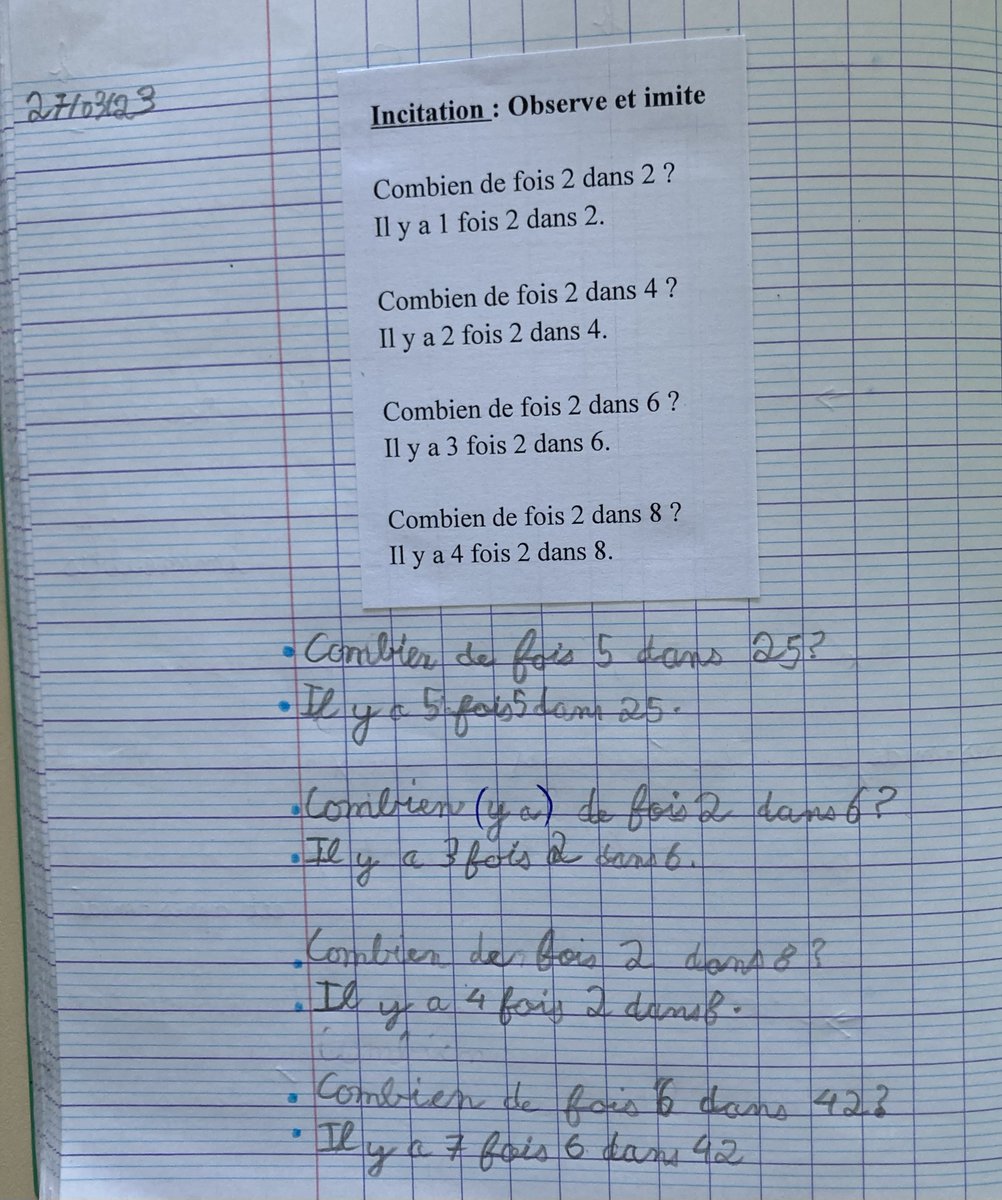 27/03/23
Incitation : Observe et imite
Combien de fois 2 dans 2 ?
Il y a 1 fois 2 dans 2.
Combien de fois 2 dans 4 ?
Il y a 2 fois 2 dans 4.
Combien de fois 2 dans 6 ?
Il y a 3 fois 2 dans 6.
Combien de fois 2 dans 8 ?
Il y a 4 fois 2 dans 8.
• Combien de fois 5 dans 25?
• Il y a 5 fois 5 dans 25.
• Combien (y a) de fois 2 dans 6?
• Il y a 3 fois 2 dans 6.
• Combien de fois 2 dans 8?
• Il y a 4 fois 2 dans 8.
• Combien de fois 6 dans 42?
• Il y a 7 fois 6 dans 42